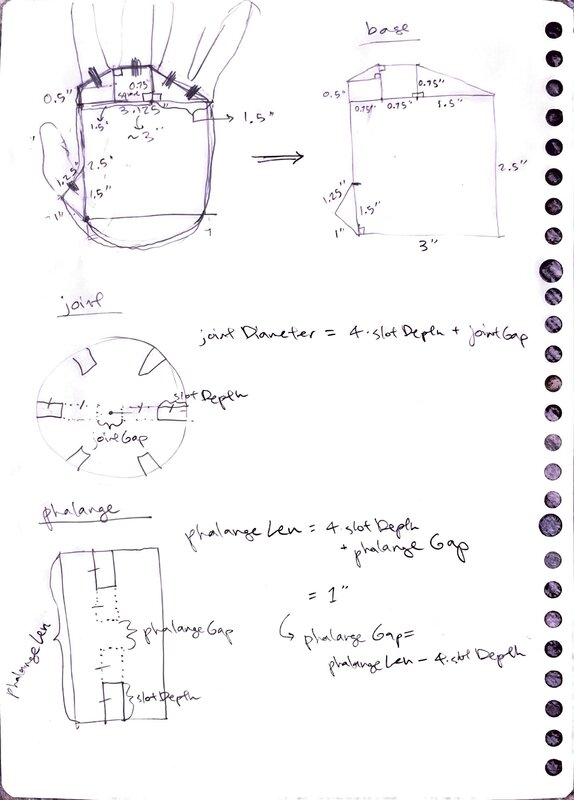 base
0.5"
0.75
1.5"
3.125"
~3"
1.5"
2.5"
1.25"
1.5"
1"
0.5"
0.75"
0.75"
0.75"
1.5"
2.5"
1.25"
1.5"
1"
3"
joint
joint Diameter = 4·slot Depth + joint Gap
slot Depth
joint Gap
phalange
phalange Len = 4·slot Depth
+ phalange Gap
= 1"
phalange Gap=
phalange Len - 4·slot Depth
Phalange Len
phalange Gap
slot Depth